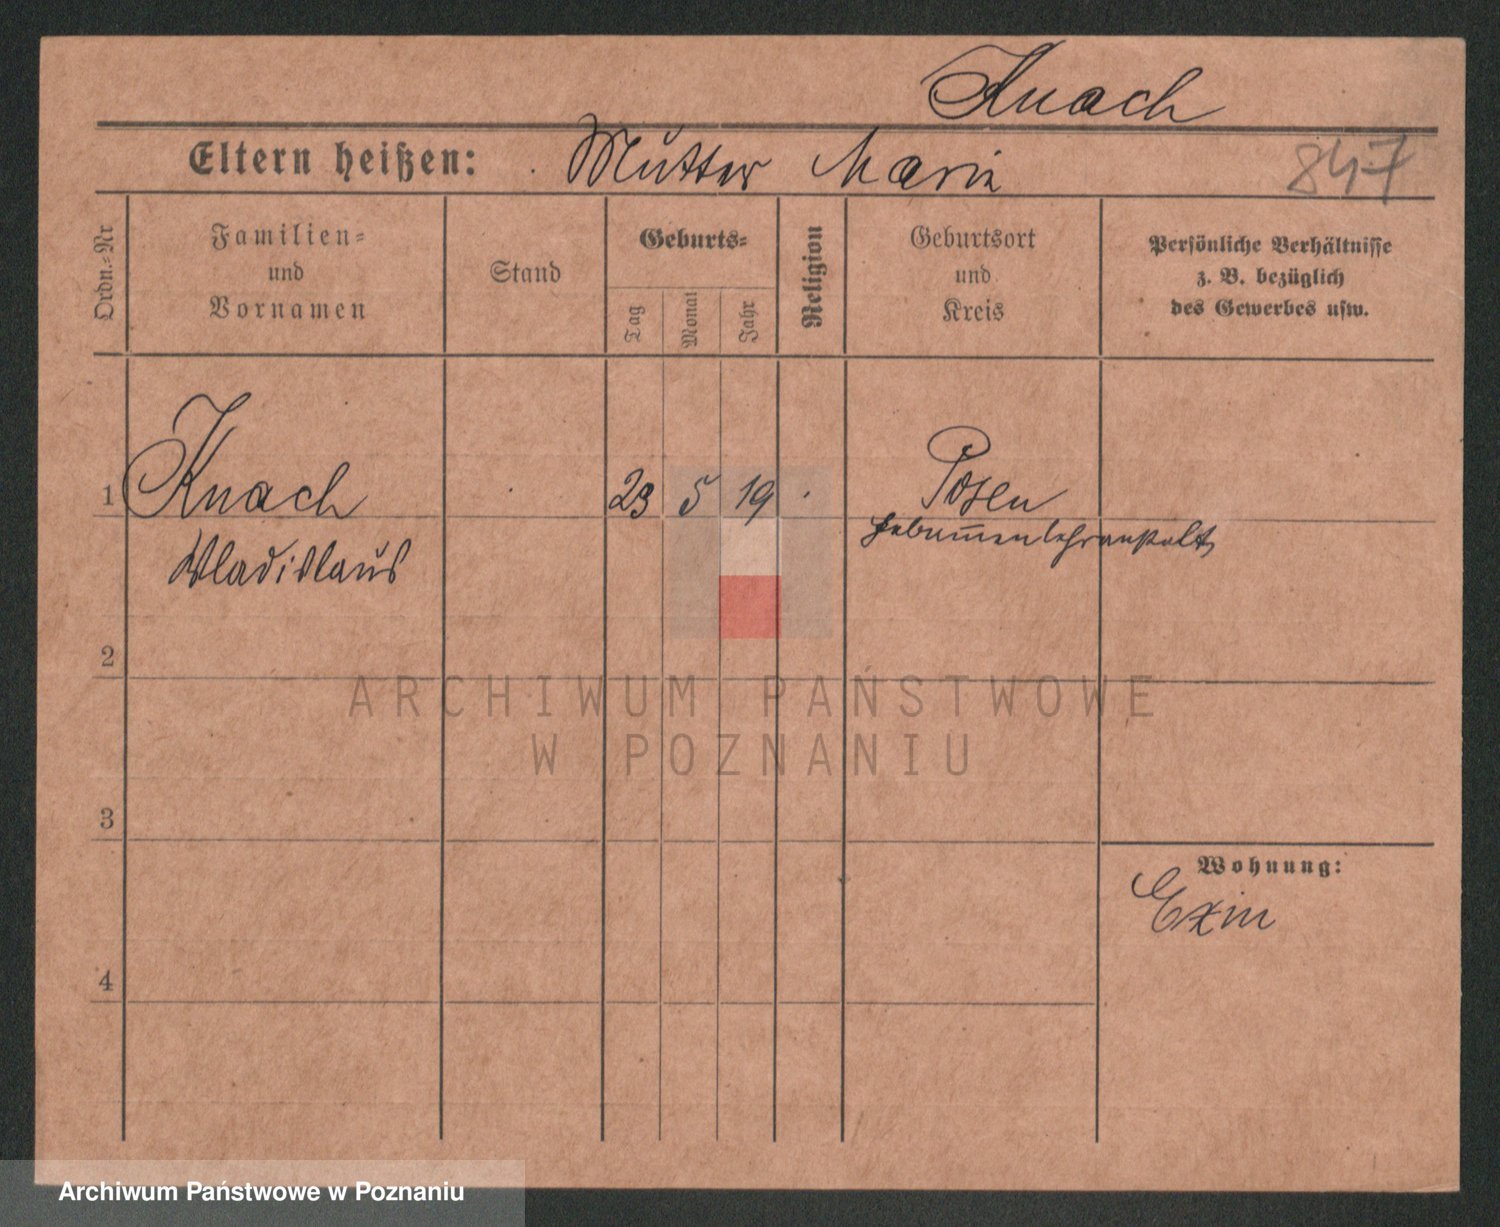 Knach
Eltern heißen: Mutter Marie
847
Ordn.-Nr
Familien-
und
Vornamen
Stand
Geburts-
Tag
Monat
Jahr
Religion
Geburtsort
und
Kreis
Persönliche Verhältnisse
z. B. bezüglich
des Gewerbes usw.
1 Knach 23 5 19 Posen
Wladislaus Hebammenlehranstalt
2
ARCHIWUM PAŃSTWOWE
W POZNANIU
3
Wohnung:
Exin
4
Archiwum Państwowe w Poznaniu